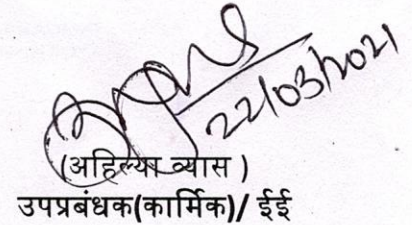 22/03/2021
(अहिल्या व्यास )
उपप्रबंधक(कार्मिक)/ ईई